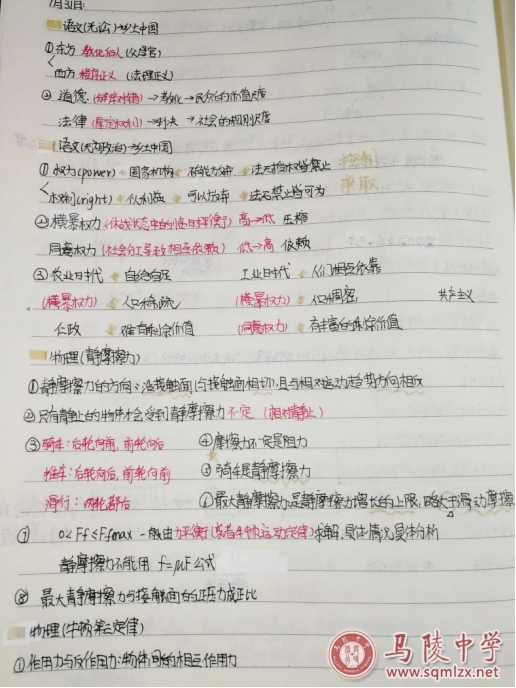 1月31日:
语文(无讼)→乡土中国
①东方 教化后人(父母官)
西方 程序正义 (法理正义)
② 道德 →教化→民众的价值尺度
法律 →判决→社会的规则尺度
语文(无为政治)→乡土中国
①权力(power) 国家机构 不能放弃 法无授权皆禁止
权利(right) 个人利益 可以放弃 法无禁止皆可为 争取
②横暴权力 高→低 压榨
同意权力(社会分工导致相互依赖) 低→高 依赖
③农业时代 自给自足 工业时代 人们相互依靠
(横暴权力) (横暴权力) 人口稠密 共产主义
仁政 难有剥削价值 (同意权力) 有丰富的剥削价值
物理(静摩擦力)
①静摩擦力的方向:沿接触面(与接触面相切),且与相对运动趋势方向相反
②只有静止的物体才会受到静摩擦力 不定 (相对静止)
③骑车:后轮向前,前轮向后 ④摩擦力不一定是阻力
推车:后轮向后,前轮向前 ⑤骑车是静摩擦力
滑行:两轮都后 ⑥最大静摩擦力是静摩擦力增长的上限,略大于滑动摩擦
⑦ 0≤Ff≤Ffmax 一般由力平衡(或者牛顿运动定律)求解,具体情况具体分析
静摩擦力不能用 f=μF 公式
⑧ 最大静摩擦力与接触面的正压力成正比
物理(牛顿第三定律)
①作用力与反作用力:物体间的相互作用力
马陵中学
www.sqmlzx.net